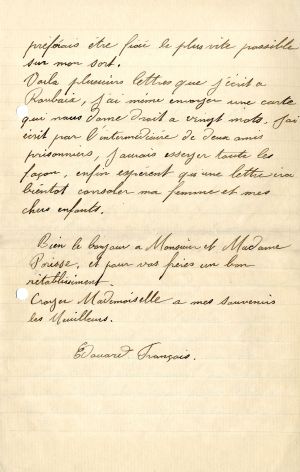 préférais être fixé le plus vite possible
sur mon sort.
Voila plusieurs lettres que j'écrit a
Roubaix, j'ai même envoyer une carte
qui nous donne droit a vingt mots, j'ai
écrit par l'intermédiaire de deux amis
prisonniers, j'aurais essayer toute les
façon, enfin esperont qu'une lettre ira
bientot consoler ma femme et mes
chers enfants.
Bien le bonjour a Monsieur et Madame
et pour vos frères un bon
rétablissement.
Croyez Mademoiselle a mes souvenirs
les Meilleurs.
Edouard François.